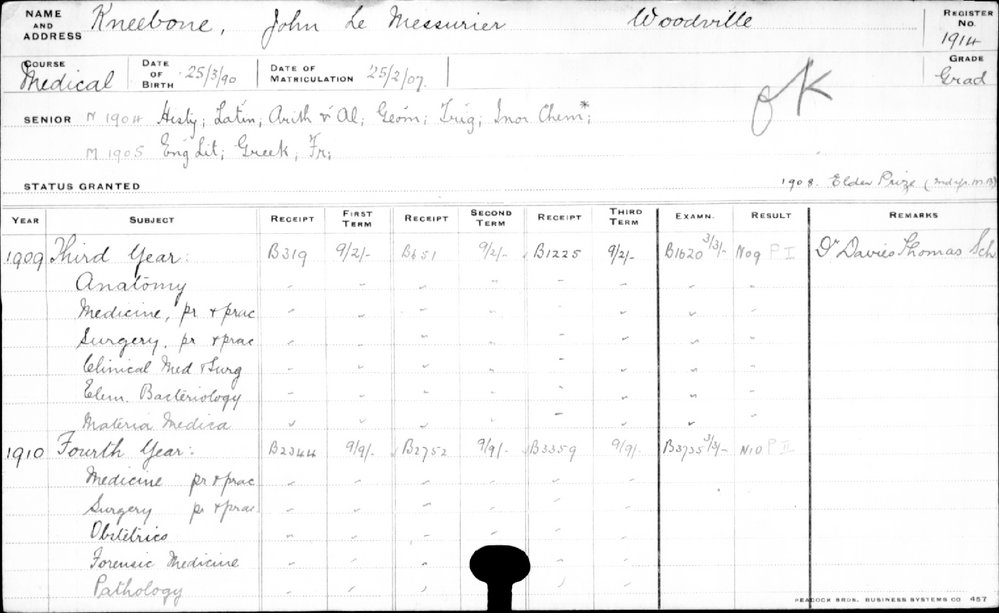 NAME AND ADDRESS Kneebone, John Le Messurier Woodville REGISTER No. 1914
COURSE Medical DATE OF BIRTH 25/3/90 DATE OF MATRICULATION 25/2/07. GRADE Grad
OK
SENIOR N 1904 Histy; Latin, Arith & Al; Geom; Trig; Inor Chem*;
M 1905 Eng Lit; Greek; Fr;
STATUS GRANTED 1908. Elder Prize (2nd yr. M.B)
YEAR SUBJECT RECEIPT FIRST TERM RECEIPT SECOND TERM RECEIPT THIRD TERM EXAMN. RESULT REMARKS
1909 Third Year: B319 9/2/- B651 9/2/- B1225 9/2/- B1620 3/3/- N09 P I Dr Davies Thomas Sch.
Anatomy " " " " " " " "
Medicine, pr & prac " " " " " " " "
Surgery, pr & prac " " " " " " " "
Clinical Med & Surg " " " " " " " "
Elem. Bacteriology " " " " " " " "
Materia Medica " " " " " " " "
1910 Fourth Year: B2344 9/9/- B2752 9/9/- B3359 9/9/- B3735 3/3/- N10 P II
Medicine pr & prac " " " " " "
Surgery pr & prac " " " " " "
Obstetrics " " " " " "
Forensic Medicine " " " " " "
Pathology " " " " " "
PEACOCK BROS. BUSINESS SYSTEMS CO 457